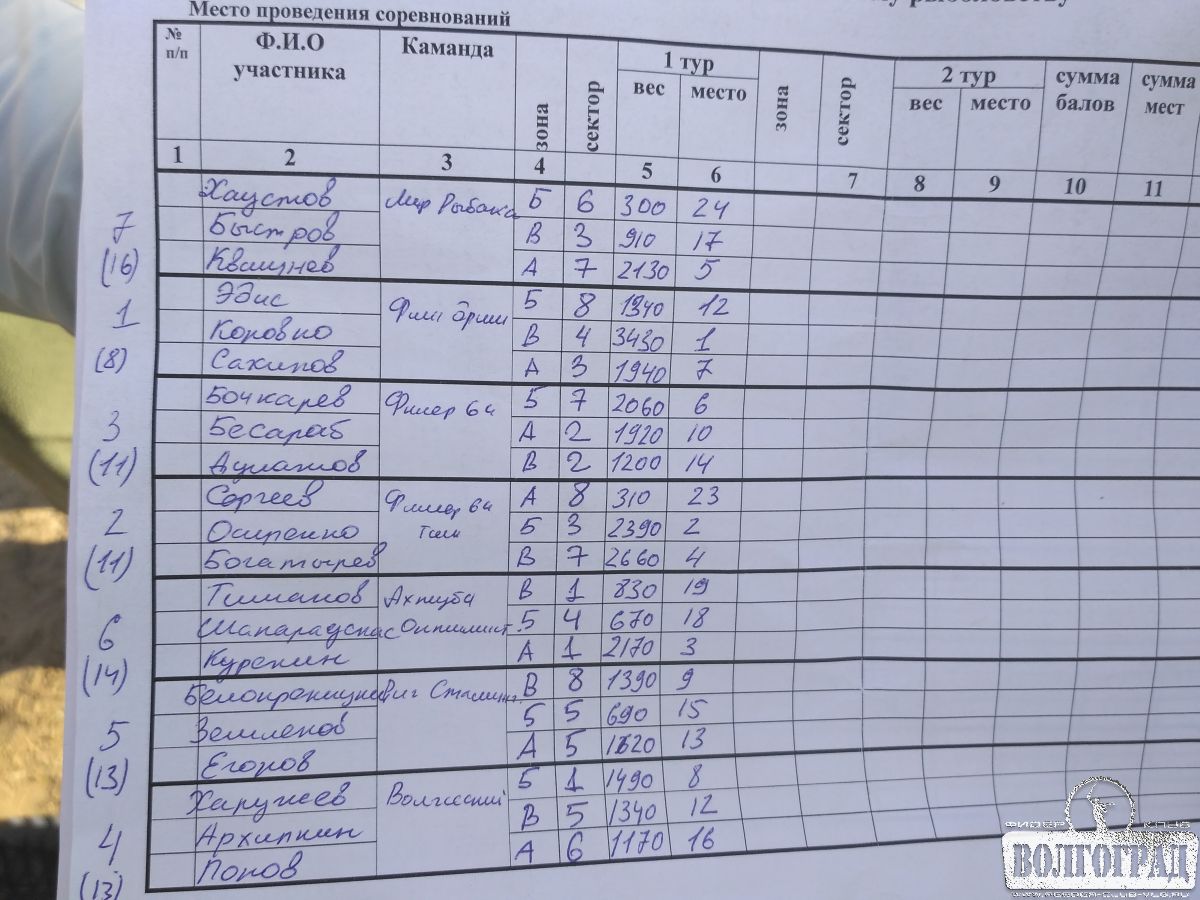 му рыболовству
Место проведения соревнований
№ п/п Ф.И.О участника Каманда зона сектор 1 тур вес место зона сектор 2 тур вес место сумма балов сумма мест
1 2 3 4 5 6 7 8 9 10 11
Хаустов Мир Рыбака Б 6 300 24
7 Быстров В 3 910 17
(16) Квашнев А 7 2130 5
1 Эдис Б 8 1940 12
Коровко В 4 3430 1
(8) Сахипов А 3 1940 7
Бочкарев Фидер 64 Б 7 2060 6
3 Бесараб А 2 1920 10
(11) В 2 1200 14
Сергеев Фидер 64 А 8 310 23
2 Осиренко Тим Б 3 2390 2
(11) Богатырев В 7 2660 4
Тиманов Ахтуба В 1 830 19
6 Оптимист Б 4 670 18
(14) Курепин А 1 2170 3
В 8 1390 9
5 Землепов Б 5 690 15
(13) Егоров А 5 13
Харучеев Волжский Б 1 1490 8
4 Архипкин В 5 1340 12
(13) Попов А 6 1170 16
ФИДЕР КЛУБ
ВОЛГОГРАД
www.feeder-club-vlg.ru